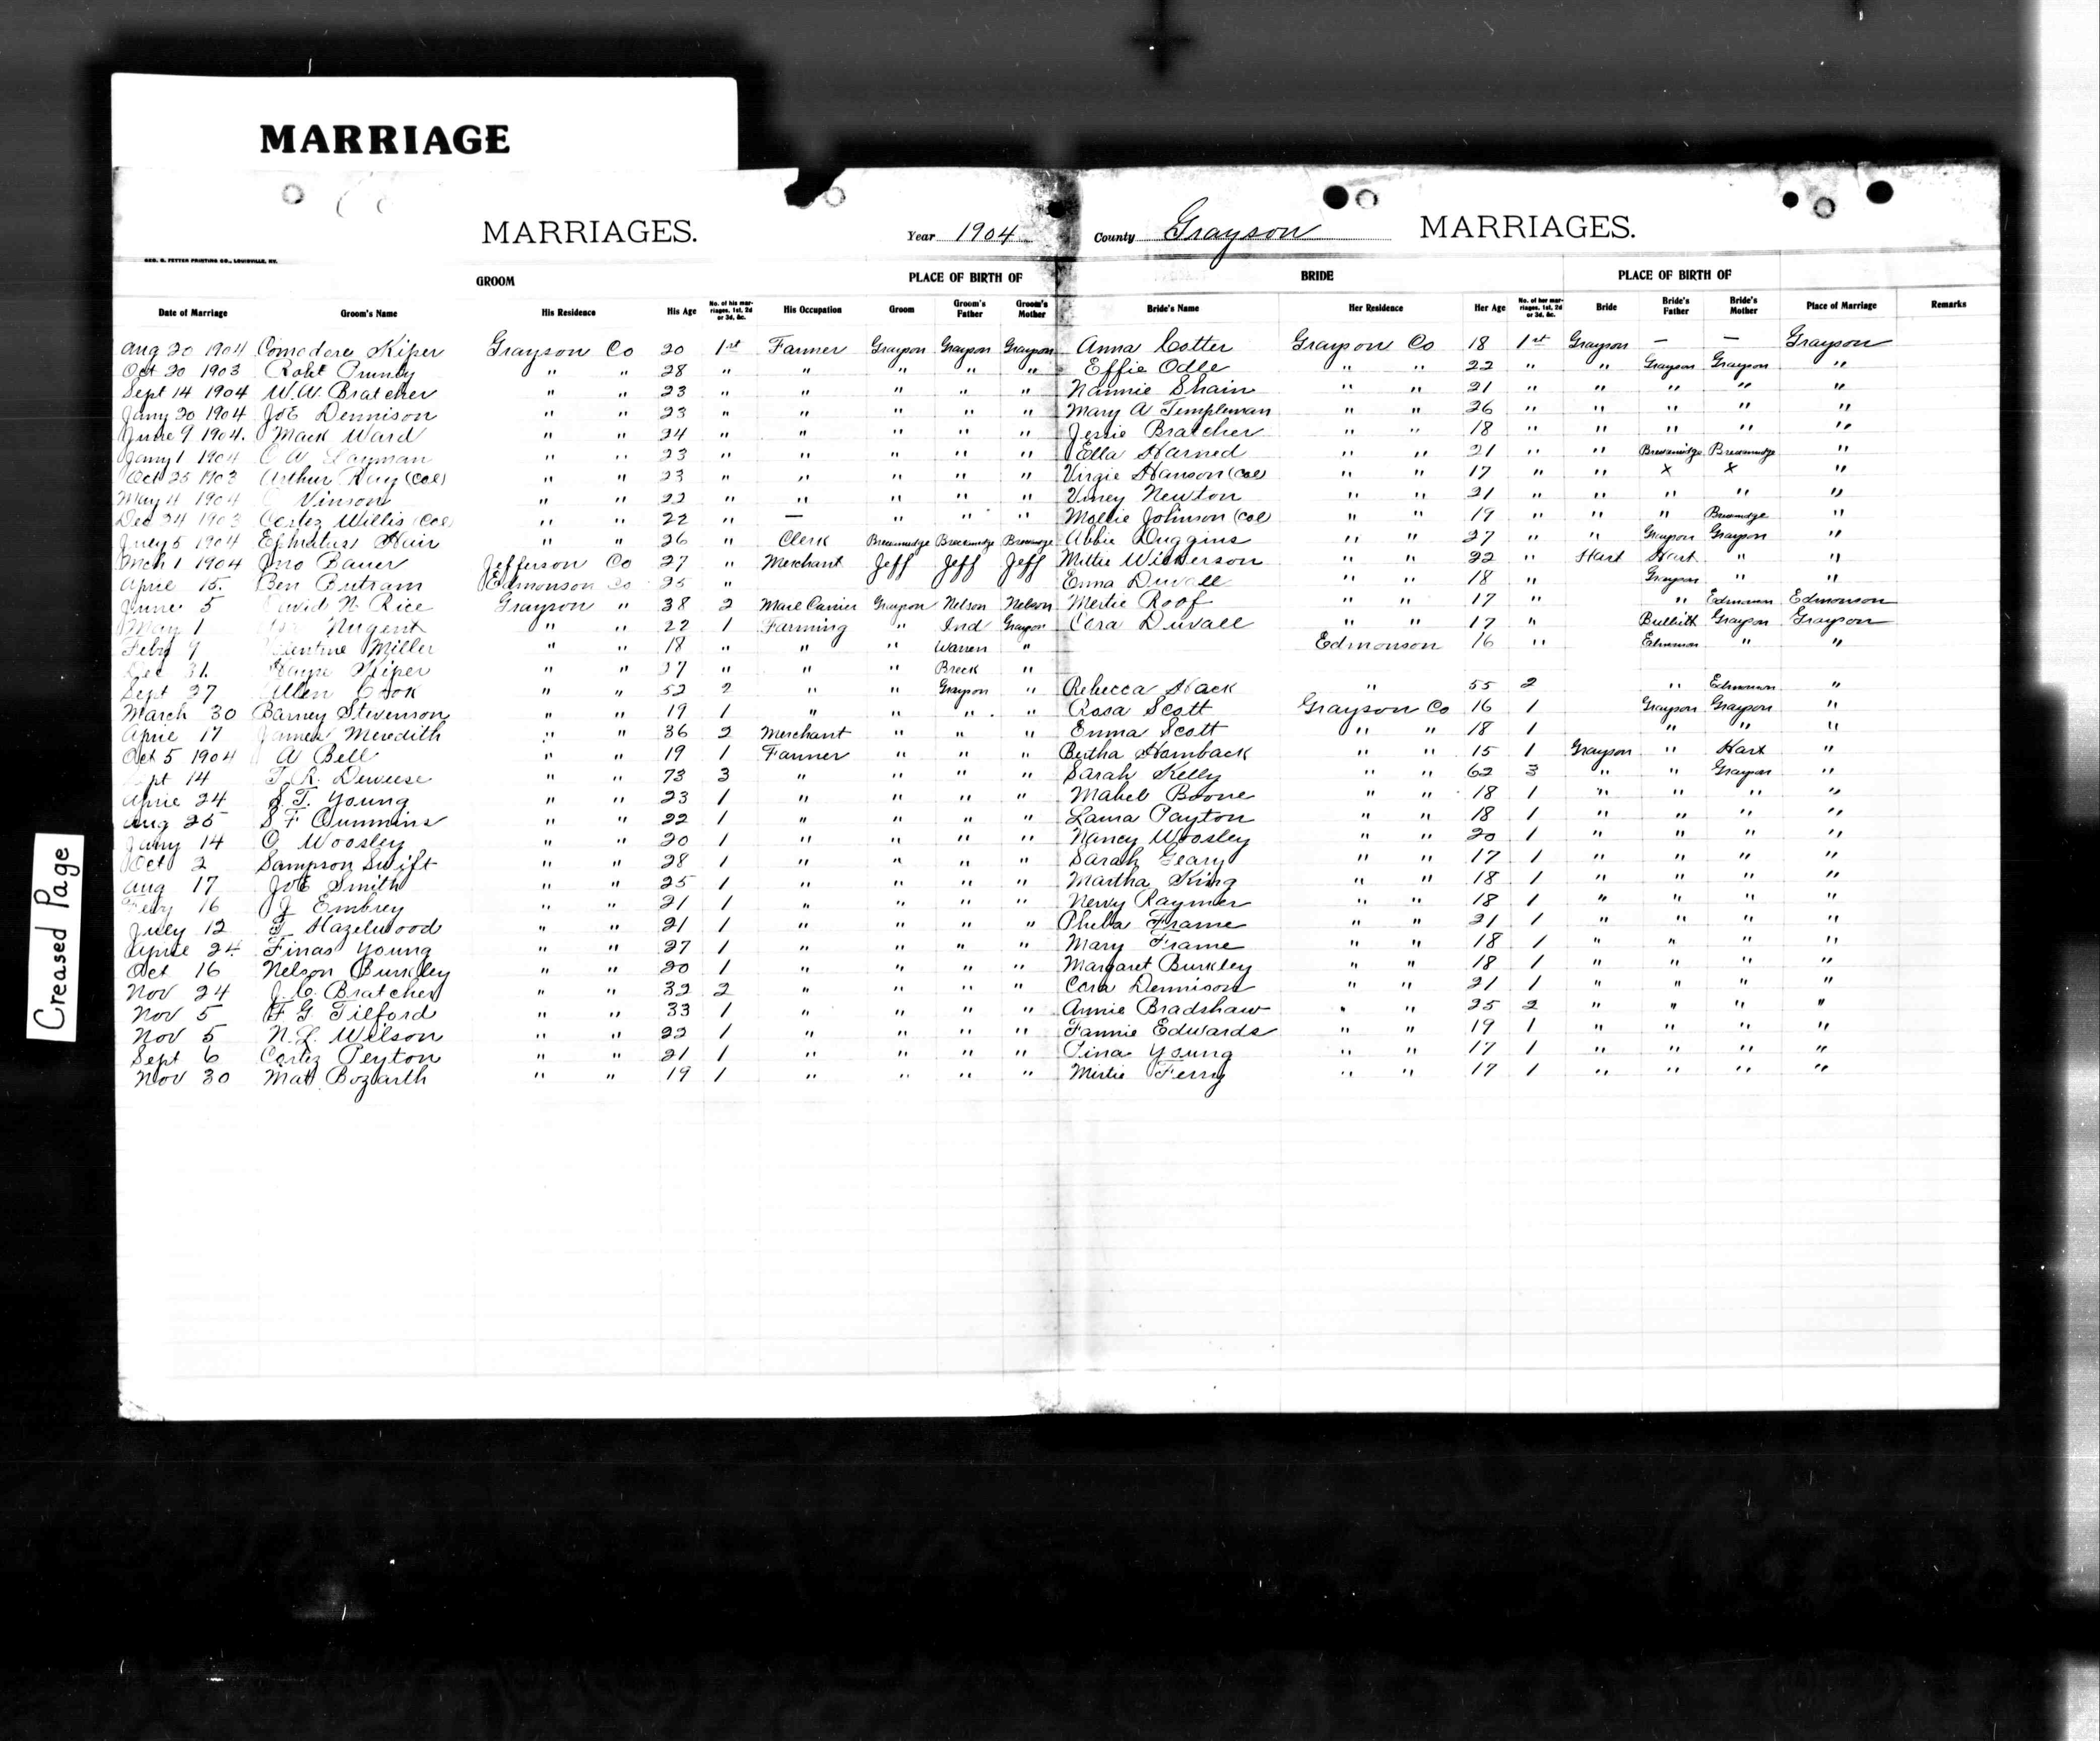 MARRIAGE
MARRIAGES. Year 1904 County Grayson MARRIAGES.
GEO. G. FETTER PRINTING CO., LOUISVILLE, KY.
GROOM PLACE OF BIRTH OF BRIDE PLACE OF BIRTH OF
Date of Marriage Groom's Name His Residence His Age No. of his marriages, 1st, 2d or 3d, &c. His Occupation Groom Groom's Father Groom's Mother Bride's Name Her Residence Her Age No. of her marriages, 1st, 2d or 3d, &c. Bride Bride's Father Bride's Mother Place of Marriage Remarks
Aug 20 1904 Comodore Kiper Grayson Co 20 1st Farmer Grayson Grayson Grayson Anna Cotter Grayson Co 18 1st Grayson — — Grayson
Oct 20 1903 Robt " " 28 " " " " " Effie Odle " " 22 " " Grayson Grayson "
Sept 14 1904 W.W. Bratcher " " 23 " " " " " Nannie Shain " " 21 " " " " "
Jany 20 1904 Joe Dennison " " 23 " " " " " Mary A Templeman " " 26 " " " " "
June 9 1904. Mack Ward " " 24 " " " " " Jessie Bratcher " " 18 " " " " "
Jany 1 1904 Layman " " 23 " " " " " Ella Harned " " 21 " " Breckinridge Breckinridge "
Oct 25 1903 Arthur Ray (Col) " " 23 " " " " " Virgie Hanson (Col) " " 17 " " X X "
May 4 1904 Vinson " " 22 " " " " " Viney Newton " " 21 " " " " "
Dec 24 1903 Cortez Willis (Col) " " 22 " — " " " Mollie Johnson (Col) " " 19 " " " Breckinridge "
July 5 1904 Hair " " 26 " Clerk Breckinridge Breckinridge Breckinridge Abbie Duggins " " 27 " " Grayson Grayson "
Mch 1 1904 Jno Bauer Jefferson Co 27 " Merchant Jeff Jeff Jeff Mittie Wilkerson " " 22 " Hart Hart " "
April 15. Ben Butram Edmonson Co 25 " Emma Duvall " " 18 " Grayson " "
June 5 David N. Rice Grayson " 38 2 Mail Carrier Grayson Nelson Nelson Mertie Roof " " 17 " " Edmonson Edmonson
May 1 Nugent " " 22 1 Farming " Ind Grayson Cora Duvall " " 17 " Bullitt Grayson Grayson
Feby 9 Miller " " 18 " " " Warren " Edmonson 16 " Edmonson " "
Dec 31. Kiper " " 27 " " " Breck "
Sept 27 Allen Cook " " 52 2 " " Grayson " Rebecca Hack " 55 2 " Edmonson "
March 30 Barney Stevenson " " 19 1 " " " " Rosa Scott Grayson Co 16 1 Grayson Grayson "
April 17 James Meredith " " 36 2 Merchant " " " Emma Scott " " 18 1 " " "
Oct 5 1904 A Bell " " 19 1 Farmer " " " Bertha Hornback " " 15 1 Grayson " Hart "
Sept 14 T. R. Deweese " " 73 3 " " " " Sarah Kelly " " 62 3 " " Grayson "
April 24 S. T. Young " " 23 1 " " " " Mabel Boone " " 18 1 " " " "
Aug 25 S F Cummins " " 22 1 " " " " Laura Payton " " 18 1 " " " "
Jany 14 O Woosley " " 20 1 " " " " Nancy Woosley " " 20 1 " " " "
Oct 2 Sampson Swift " " 28 1 " " " " Sarah Geary " " 17 1 " " " "
Aug 17 Joe Smith " " 25 1 " " " " Martha King " " 18 1 " " " "
Feby 16 J Embrey " " 21 1 " " " " Nervy Raymer " " 18 1 " " " "
July 12 T. Hazelwood " " 21 1 " " " " Pheba Frame " " 21 1 " " " "
April 24. Finas Young " " 27 1 " " " " Mary Frame " " 18 1 " " " "
Oct 16 Nelson Burkley " " 20 1 " " " " Margaret Burkley " " 18 1 " " " "
Nov 24 J. C. Bratcher " " 32 2 " " " " Cora Dennison " " 21 1 " " " "
Nov 5 F G Tilford " " 33 1 " " " " Annie Bradshaw " " 25 2 " " " "
Nov 5 N. L. Wilson " " 22 1 " " " " Fannie Edwards " " 19 1 " " " "
Sept 6 Cortez Peyton " " 21 1 " " " " Tina Young " " 17 1 " " " "
Nov 30 Mat Bozarth " " 19 1 " " " " Mirtie Ferry " " 17 1 " " " "
Creased Page